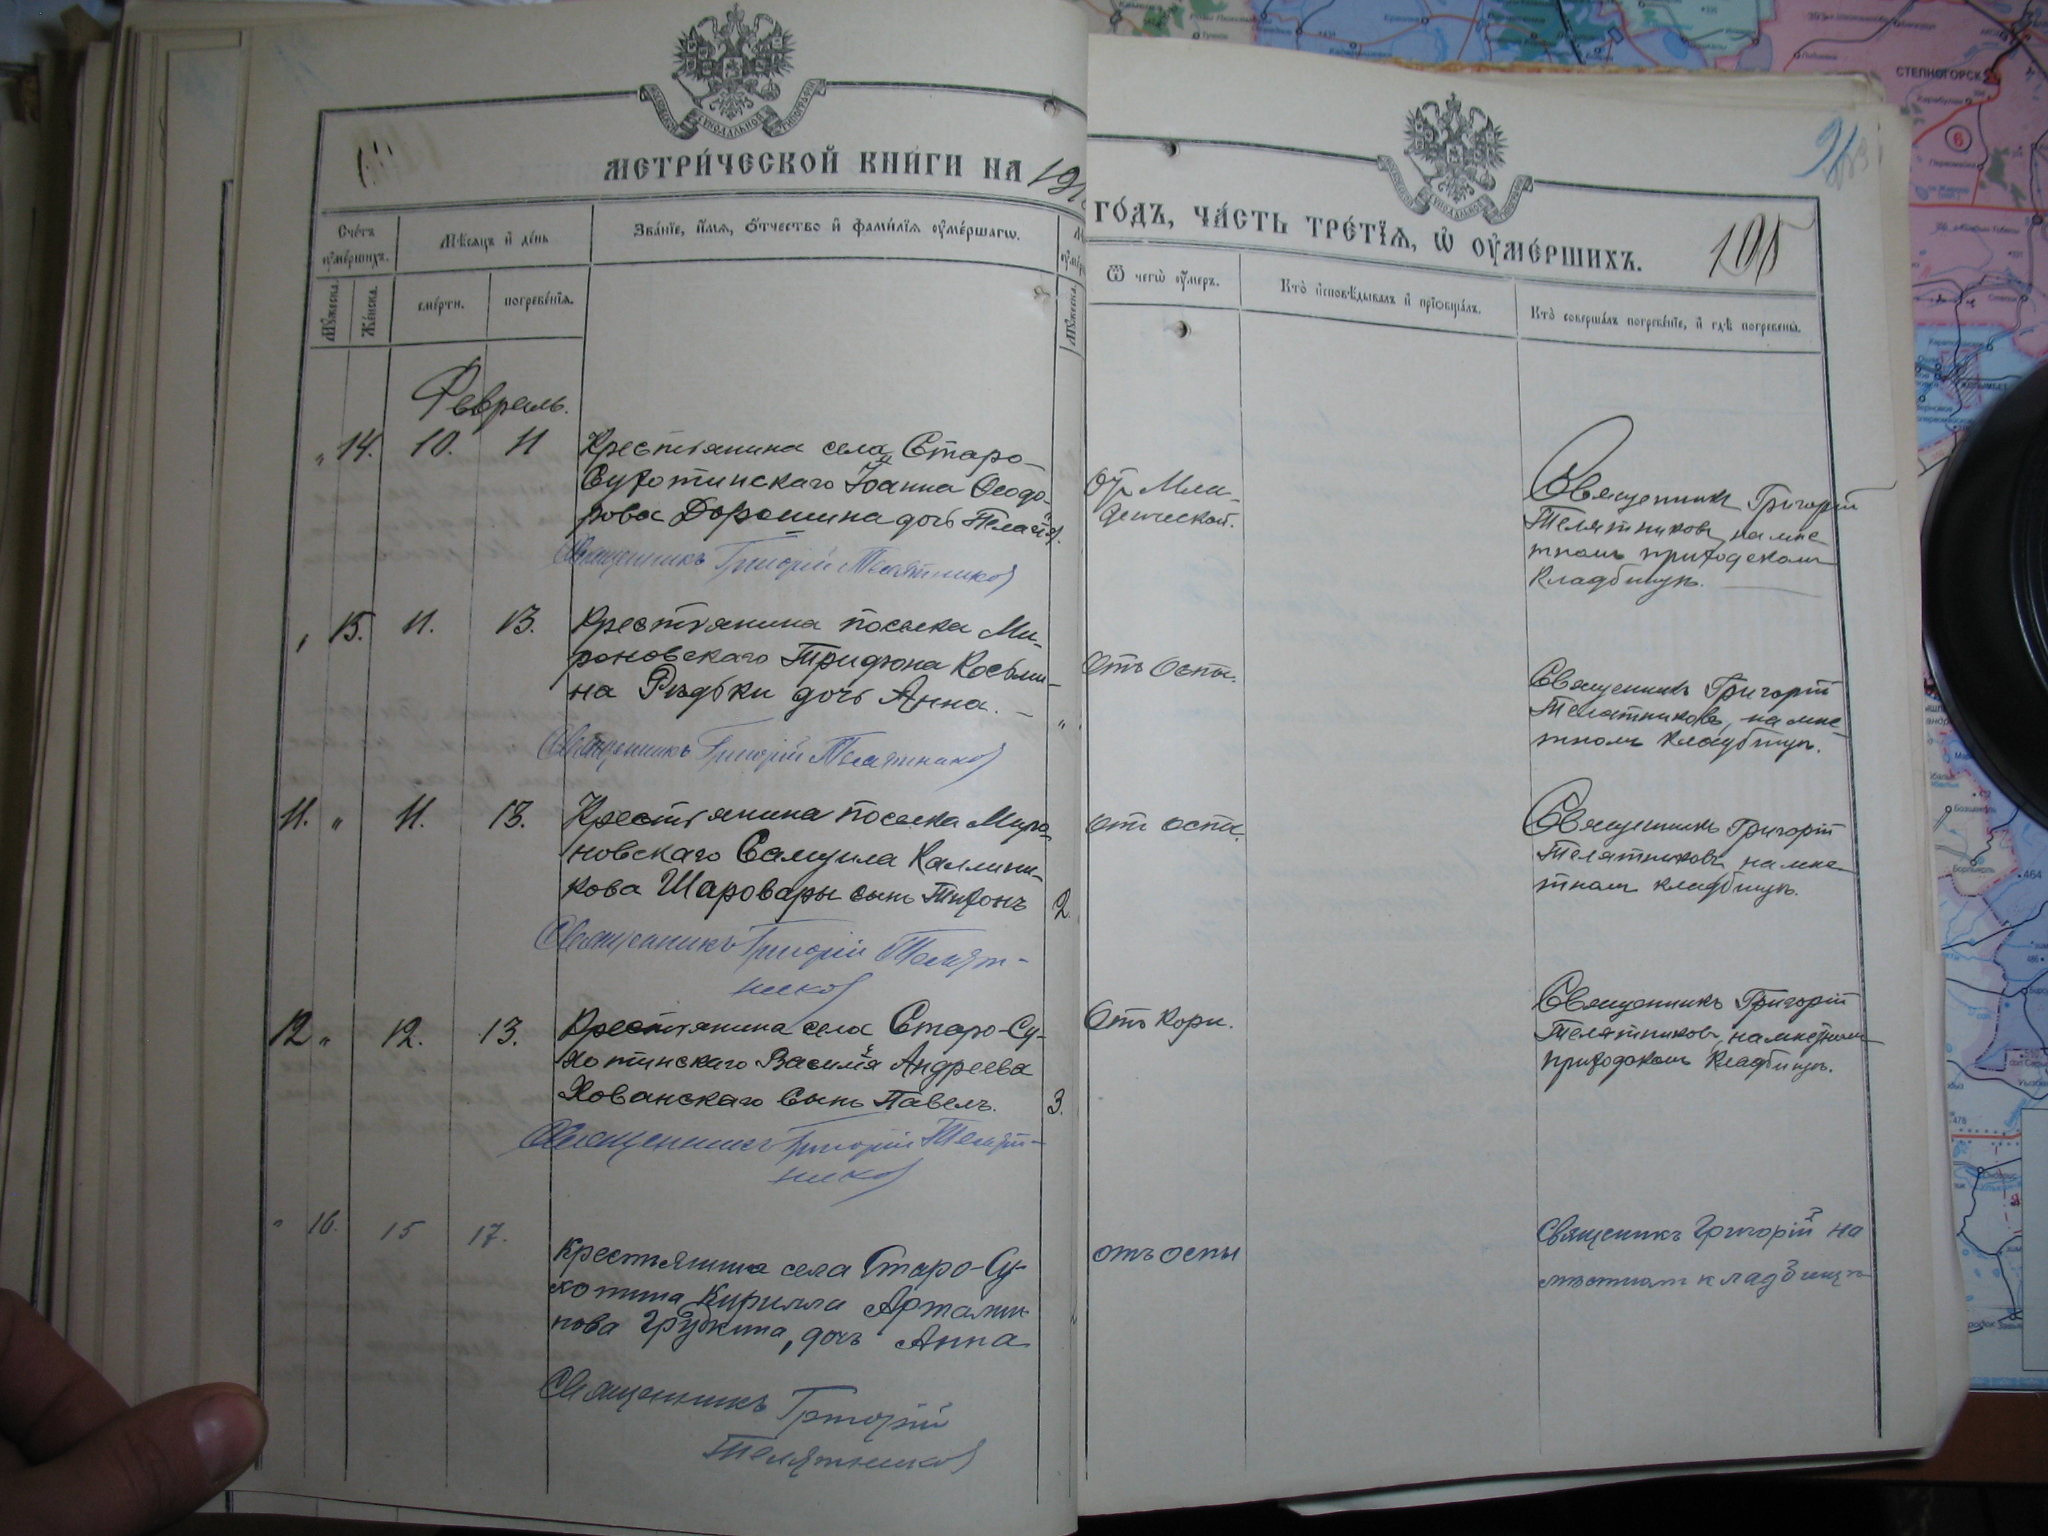 МЕТРИ́ЧЕСКОЙ КНИ́ГИ НА 191
ГО́ДЪ, ЧА́СТЬ ТРЕ́ТЇѦ, Ѡ҆ ОУ҆МЕ́РШИХЪ.
Сче́тъ оу҆ме́ршихъ.
Мѣ́сѧцъ и҆ де́нь
Зва́нїе, и҆́мѧ, ѻ҆́тчество и҆ фами́лїѧ оу҆ме́ршагѡ.
Мꙋ́жеска.
Же́нска.
сме́рти.
погребе́нїѧ.
Мꙋ́жеска.
Ѿ чегѡ̀ оу҆́меръ.
Кто̀ и҆сповѣ́дывалъ и҆ прїѡбща́лъ.
Кто̀ соверша́лъ погребе́нїе, и҆ гдѣ̀ погребены̀.
Февраль.
" 14. 10. 11
Крестьянина села Старо-
Сухотинскаго Іоанна Ѳеодо-
рова Дорошина дочь Пелагія.
Священникъ Григорій Телятников
Мла-
денческой.
Священникъ Григорій
Телятниковъ, на мѣс
тномъ приходском
кладбищѣ.
" 15. 11. 13.
Крестьянина поселка Ми-
роновскаго Трифона Косьми-
на Рѣдьки дочь Анна.
Священникъ Григорій Телятников
Отъ Оспы.
Священникъ Григорій
Телятниковъ, на мѣс
тномъ кладбищѣ.
11. " 11. 13.
Крестьянина поселка Миро-
новскаго Самуила Каллини-
кова Шаровары сынъ Тихонъ
2.
Священникъ Григорій Телят-
ников
отъ оспы.
Священникъ Григорій
Телятниковъ, на мѣс
тномъ кладбищѣ.
12 " 12. 13.
Крестьянина села Старо-Су-
хотинскаго Василія Андреева
Хованскаго сынъ Павелъ.
3.
Священникъ Григорій Телят-
ников
Отъ Кори.
Священникъ Григорій
Телятниковъ, на мѣстном
приходском кладбищѣ.
" 16. 15 17.
Крестьянина села Старо-Су-
хотина Кирилла Артами-
нова Грубкина, дочь Анна
Священникъ Григорій
Телятников
отъ оспы
Священикъ Григорій Т на
мѣстномъ кладбищѣ
СТЕПНОГОРСК
6